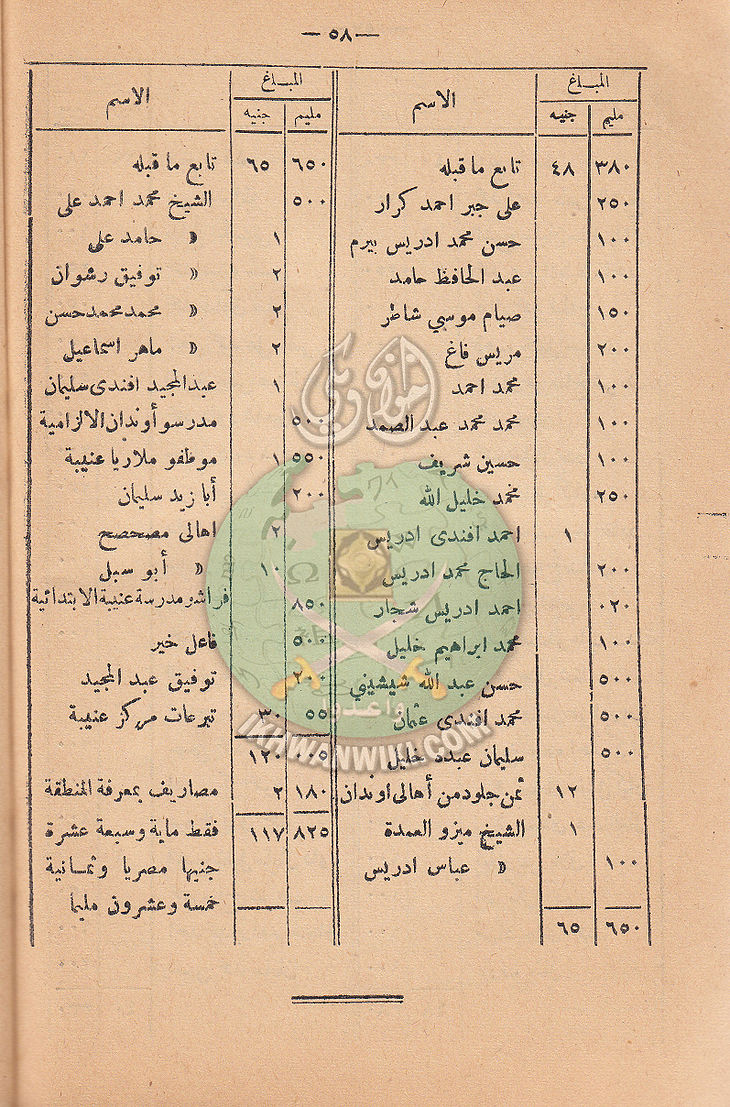 — ٥٨ —
المبلغ الاسم
مليم جنيه
٣٨٠ ٤٨ تابع ما قبله
٢٥٠ على جبر احمد كرار
١٠٠ حسن محمد ادريس بيرم
١٠٠ عبد الحافظ حامد
١٥٠ صيام موسي شاطر
٢٠٠ مريس فاغ
١٠٠ محمد احمد
١٠٠ محمد محمد عبد الصمد
١٠٠ حسين شريف
٢٥٠ محمد خليل الله
١ احمد افندى ادريس
٢٠٠ الحاج محمد ادريس
٠٢٠ احمد ادريس شجار
١٠٠ محمد ابراهيم خليل
٥٠٠ حسن عبد الله شيشيني
٥٠٠ محمد افندى عثمان
٥٠٠ سليمان عبده خليل
١٢ ثمن جلود من أهالى اوندان
١ الشيخ ميزو العمدة
١٠٠ » عباس ادريس
٦٥٠ ٦٥
المبلغ الاسم
مليم جنيه
٦٥٠ ٦٥ تابع ما قبله
٥٠٠ الشيخ محمد احمد على
١ » حامد على
٢ » توفيق رشوان
٢ » محمد محمد حسن
٢ » ماهر اسماعيل
١ عبد المجيد افندى سليمان
٥٠٠ مدرسو أوندان الالزامية
٥٥٠ ١ موظفو ملاريا عنيبة
٢٠٠ أبا زيد سليمان
٢ اهالى مصحصح
١٠ » أبو سبل
٨٥٠ فراشو مدرسة عنيبة الابتدائية
٥٠٠ فاعل خير
٢٠٠ توفيق عبد المجيد
٠٥٥ ٣٠ تبرعات مركز عنيبة
٠٠٥ ١٢٠
١٨٠ ٢ مصاريف بمعرفة المنطقة
٨٢٥ ١١٧ فقط ماية وسبعة عشرة
جنيها مصريا وثمانية
خمسة وعشرون مليما
إخوان ويكي
وأعدوا
IKHWANWIKI.COM